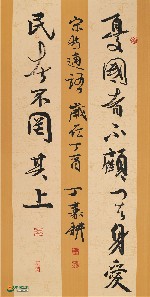 憂國者不顧其身愛
民者不罔其上
宋林逋語 歲在丁酉 丁嘉耕